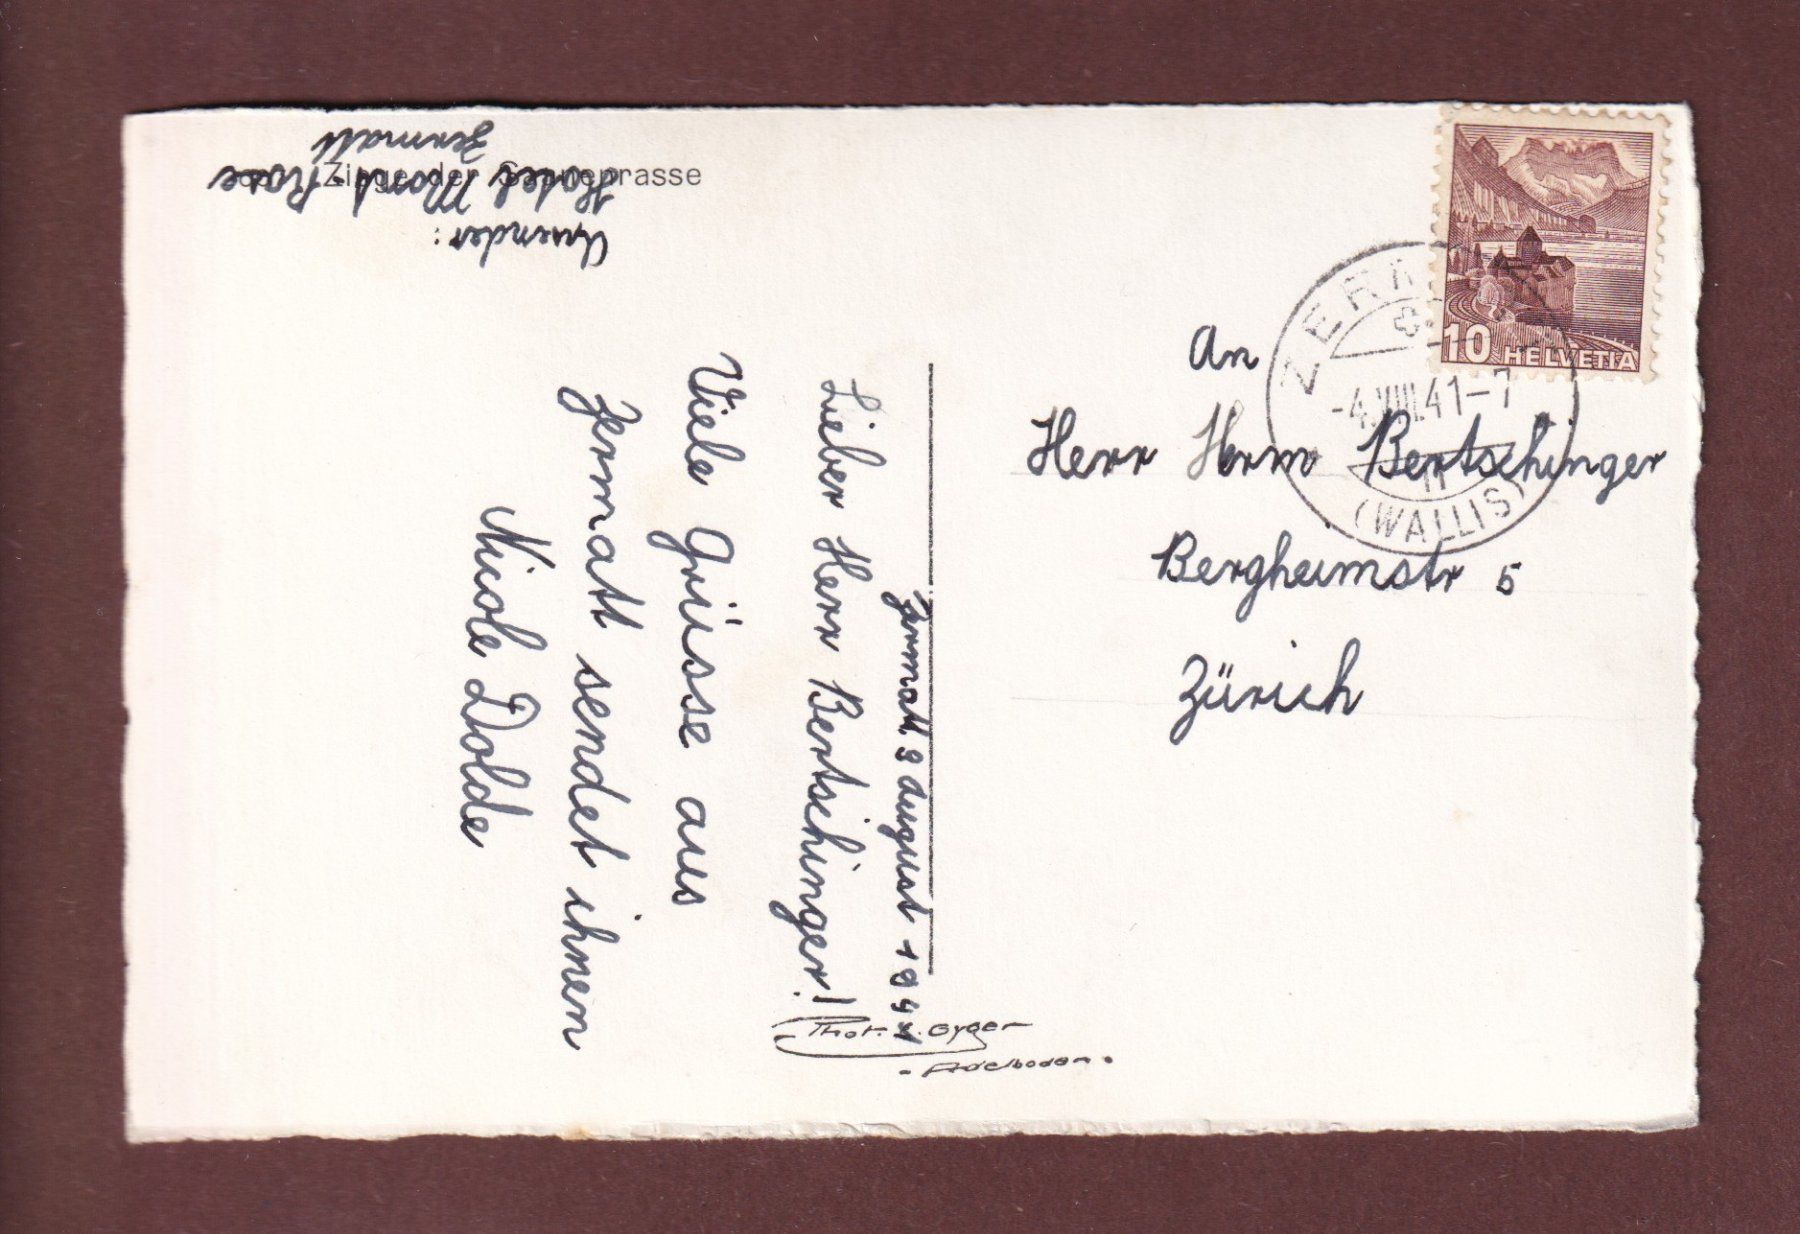 Ziege der
Absender:
Hotel Mont Rose
Zermatt
Zermatt 3 August 1941
Lieber Herr Bertschinger!
Viele Grüsse aus
Zermatt sendet ihnen
Nicole Dolde
Phot. Gyger
- Adelboden -
10 HELVETIA
ZERM
-4.VIII.41-7
(WALLIS)
An
Herr Hrm Bertschinger
Bergheimstr 5
Zürich